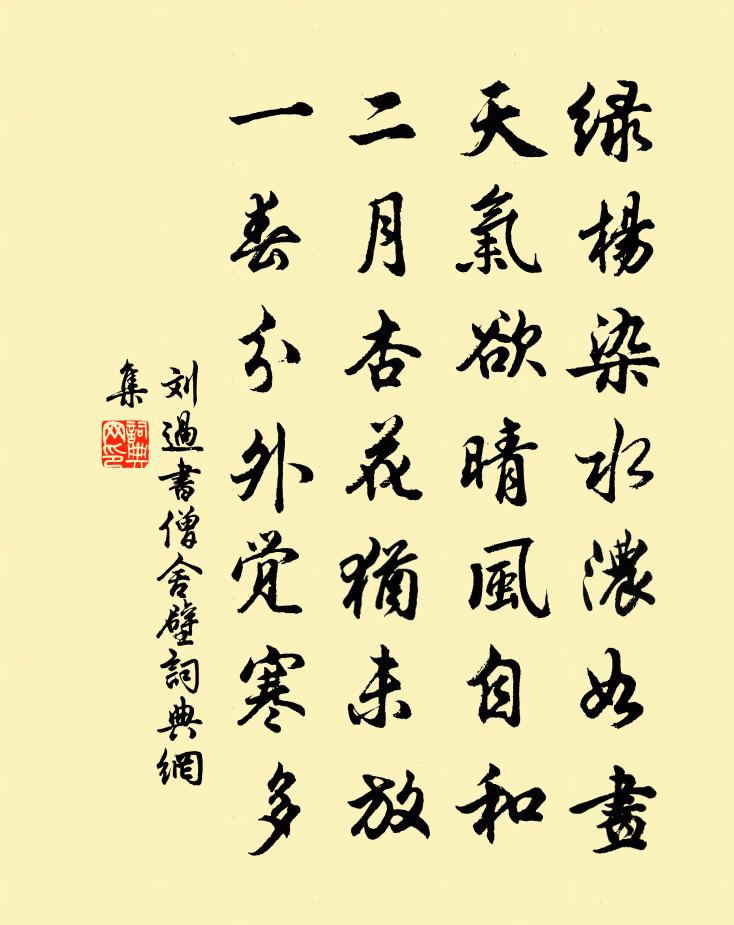 绿楊染水濃如畫
天氣欲晴風自和
二月杏花猶未放
一春分外觉寒多
刘過書僧舍壁詞典網
集
詞典网印